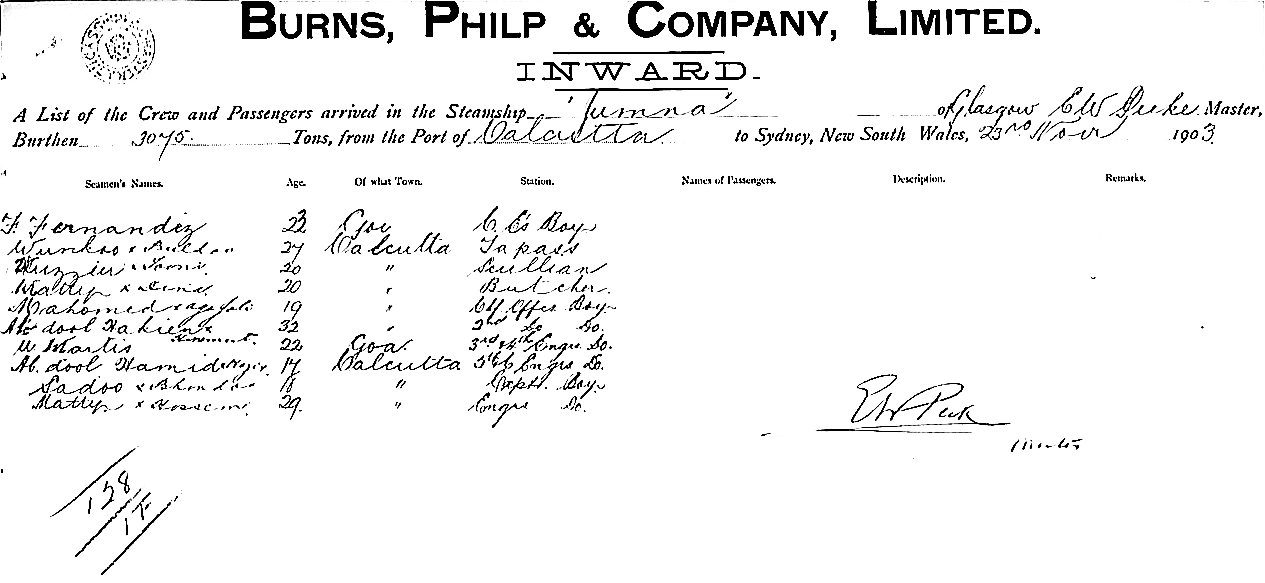 BURNS, PHILP & COMPANY, LIMITED.
INWARD.
A List of the Crew and Passengers arrived in the Steamship "Jumna" of Glasgow E W Peeke Master,
Burthen 3075 Tons, from the Port of Calcutta to Sydney, New South Wales, 23rd Novr 1903
Seamen's Names. Age. Of what Town. Station. Names of Passengers. Description. Remarks.
F. Fernandez 23 Goa C. E's Boy
27 Calcutta Tapass
20 " Scullian
Mattyp x 20 " Butcher.
Mahomed x 19 " Chf Offrs Boy
Abdool Hakien x 32 " 2nd Do Do.
Martis 22 Goa. 3rd 4th Engrs Do.
Ab. dool Hamid 17 Calcutta 5th Engrs Do.
Sadoo x 18 " Boy
Mattyp x Kossem 29. " Engrs Do.
E W Peek
Master
138
17